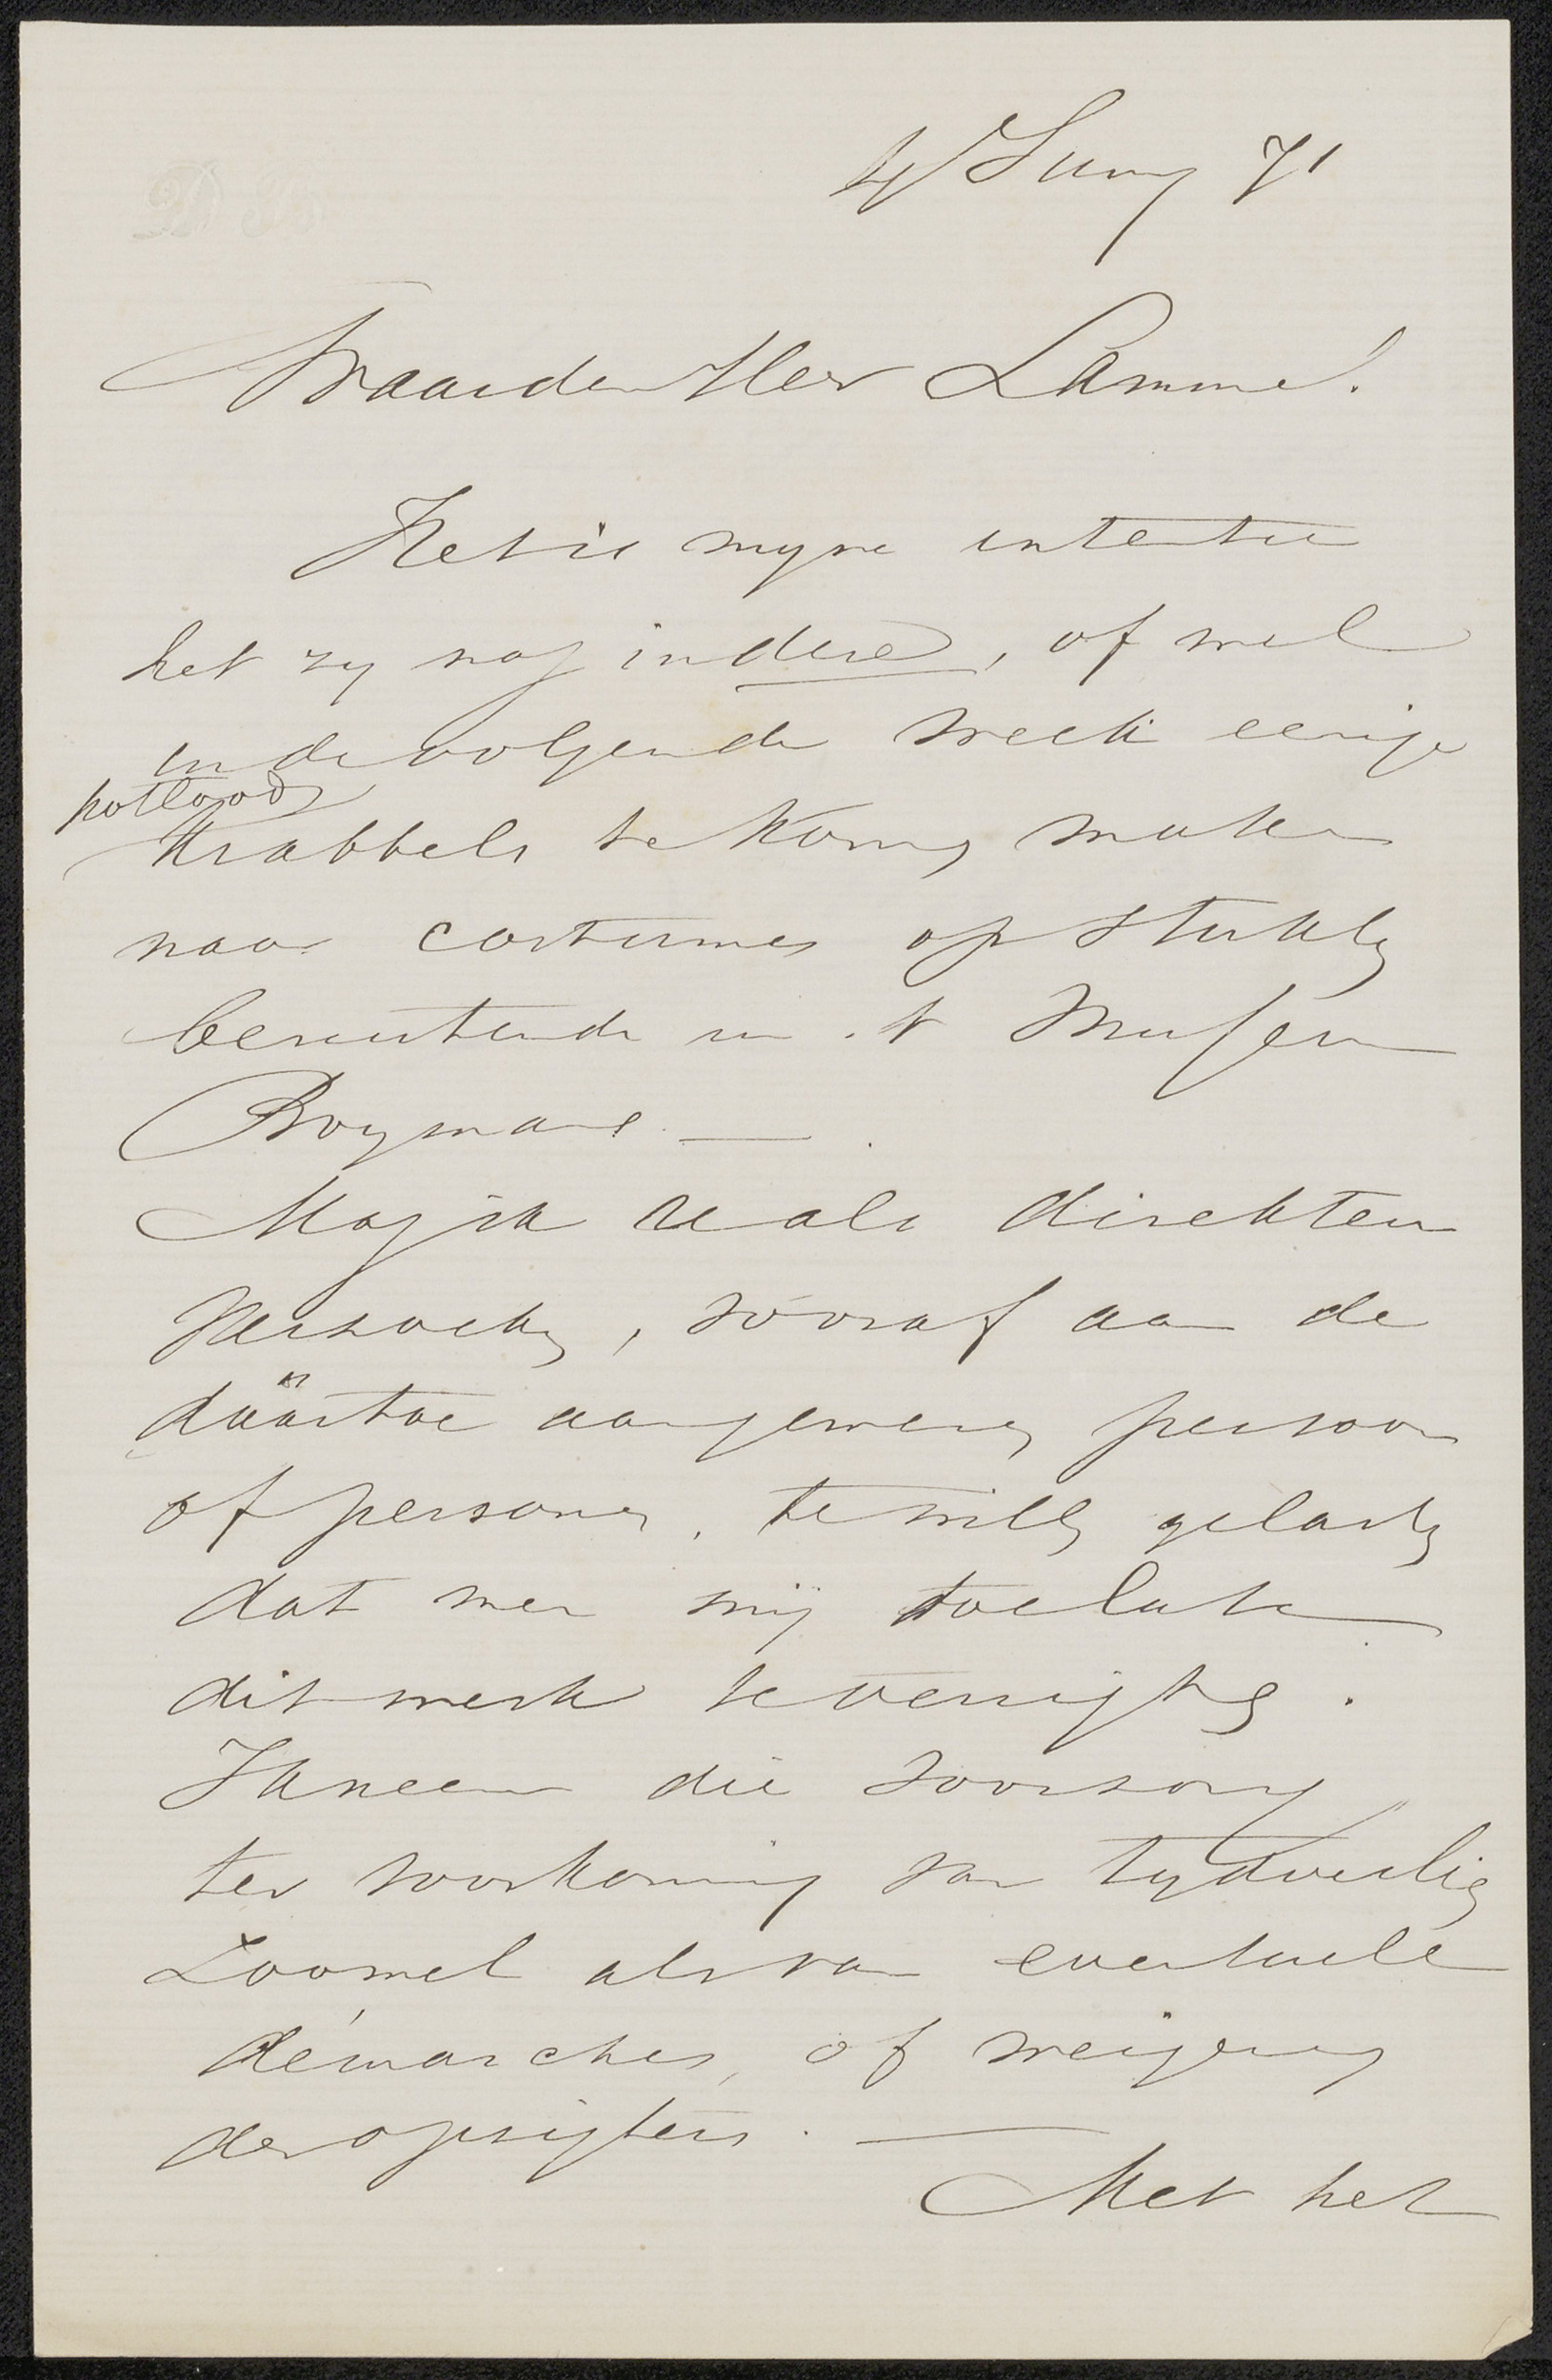 4/Juny 71
Waarden Heer Lamme!
Het is myne intentie
het zy nog in deze, of wel
in de volgende week eenige
potlood
Krabbels te komen maken
naar costumes op stukken
berustende in 't Museum
Boymans —
Mag ik U als direkteur
verzoeken, vooraf aan de
daartoe aangewezen persoon
of personen, te willen gelasten
dat men mij toelate
dit werk te verrigten.
Ik neem die voorzorg
ter voorkoming van tydverlies
Zoowel als van eventuele
démarches, of weigering
der opzigters. —
Met het